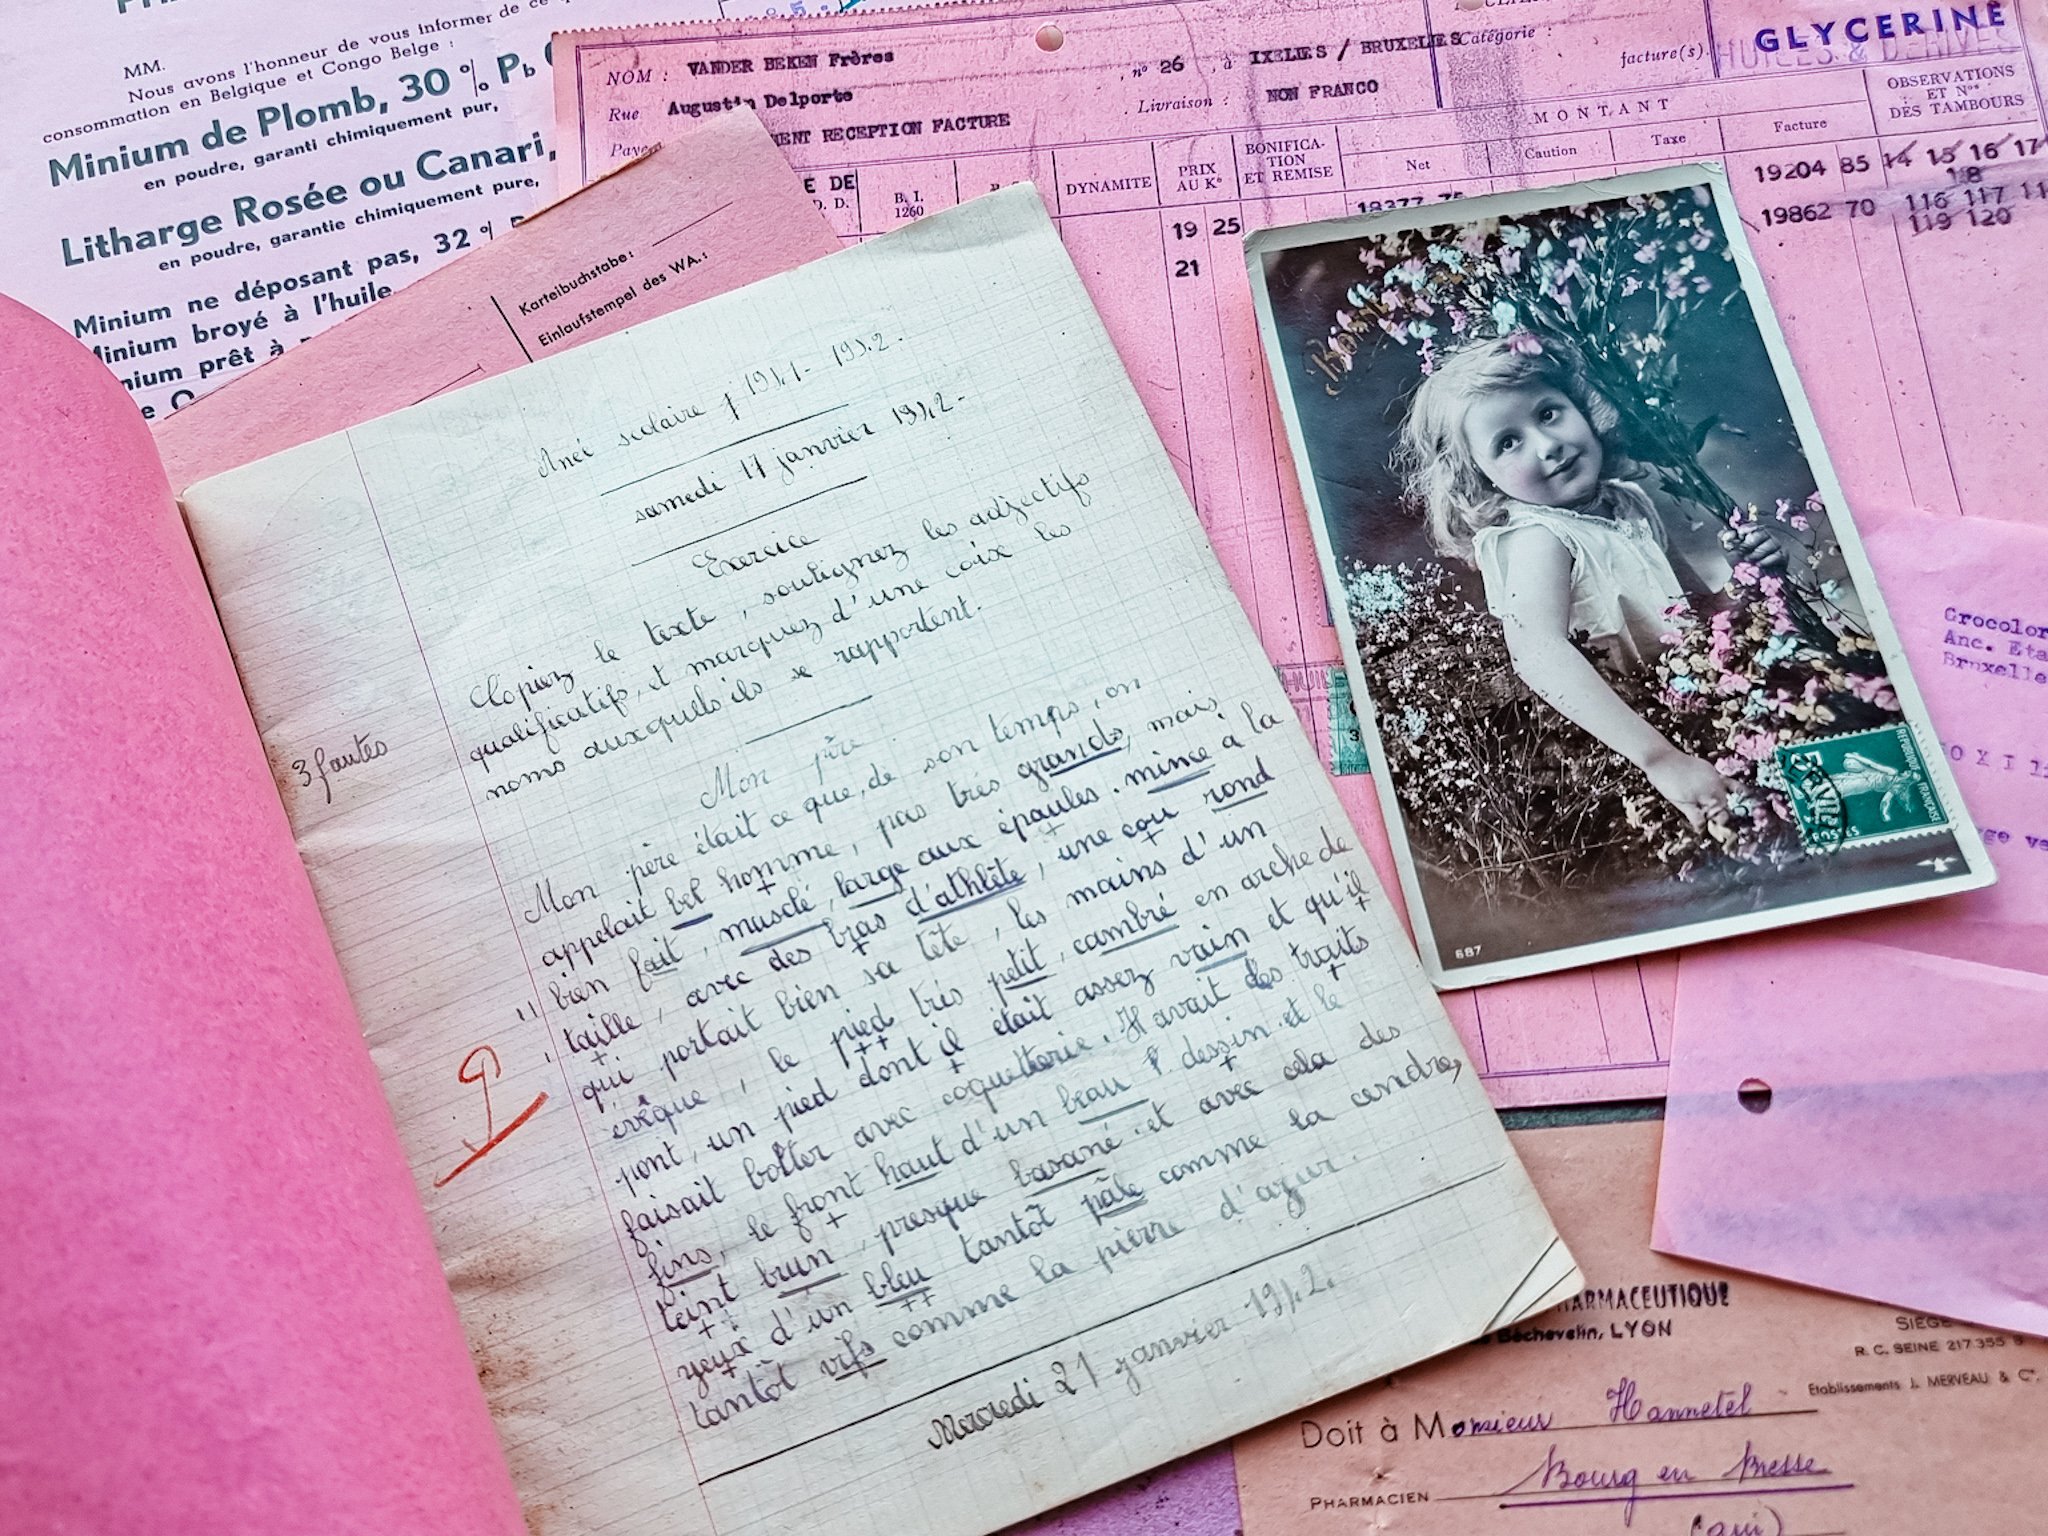 MM.
Nous avons l'honneur de vous informer de ce
consommation en Belgique et Congo Belge :
Minium de Plomb, 30 % Pb
en poudre, garanti chimiquement pur,
Litharge Rosée ou Canari,
en poudre, garantie chimiquement pure,
Minium ne déposant pas, 32 %
Minium broyé à l'huile
nium prêt à
NOM : VANDER BEKEN Frères , nº 26 , à IXELLES / BRUXELLES Catégorie :
Rue Augustin Delporte Livraison : NON FRANCO
MENT RECEPTION FACTURE
facture(s).
GLYCERINE
HUILES & DERIVES
E DE
D. D.
B. I.
1260
DYNAMITE
PRIX
AU Kº
BONIFICA-
TION
ET REMISE
MONTANT
Net
Caution
Taxe
Facture
OBSERVATIONS
ET Nos
DES TAMBOURS
19 25
21
18377 75
19204 85
19862 70
14 15 16 17
18
116 117 11
119 120
Karteibuchstabe:
Einlaufstempel des WA.:
Aneé scolaire 1941-1942.
samedi 17 janvier 1942-
Exercice
Copiez le texte, soulignez les adjectifs
qualificatifs, et marquez d'une coix les
noms auxquels ils se rapportent.
Mon père.
3 fautes
Mon père était ce que, de son temps, on
appelait bel homme, pas très grands, mais
bien fait, musclé, large aux épaules. mince à la
taille, avec des bras d'athlête, une cou rond
qui portait bien sa tête, les mains d'un
évêque, le pied très petit, cambré en arche de
pont, un pied dont il était assez vain et qu'il
faisait botter avec coquetterie. Il avait des traits
fins, le front haut d'un beau dessin. et le
teint brun, presque basané. et avec cela des
yeux d'un bleu tantôt pâle comme la cendre,
tantôt vifs comme la pierre d'azur.
Mercredi 21 janvier 1942.
687
REPUBLIQUE FRANÇAISE
Grocolor
Anc. Eta
Bruxelle
O X I
ge ve
ARMACEUTIQUE
Béchevelin, LYON
SIEGE
R. C. SEINE 217.355 B
Etablissements J. MERVEAU & Cie
Doit à Monsieur Hannetel
PHARMACIEN Bourg en Bresse